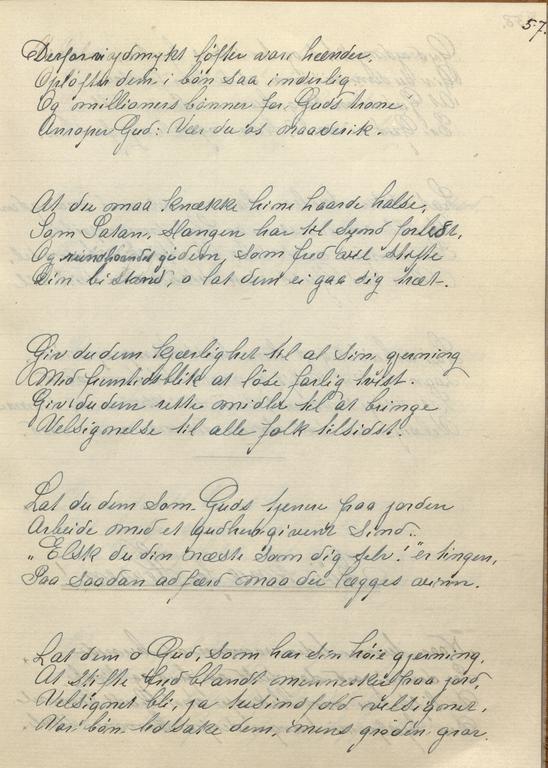 57.
Derfor vi ydmykt løfter vore hænder,
Opløfter dem i bøn saa inderlig
Og millioners bønner for Guds trone
Anroper Gud: Vær du os naaderik.
At du maa knække hine haarde halse,
Som Satan, Slangen har til synd forledt,
Og rundhaandet gi dem, som fred vil stifte
Din bistand, o lat dem ei gaa dig træt.
Giv du dem kjærlighet til al sin gjerning
Med fremtidsblik at løse farlig tvist.
Giv du dem rette midler til at bringe
Velsignelse til alle folk tilsidst.
Lat du dem som Guds tjenere paa jorden
Arbeide med et gudhengivent sind.
"Elsk du din næste som dig selv!" er tingen,
Paa saadan adfærd maa der lægges vinn.
Lat dem o Gud, som har din høie gjerning,
At stifte fred blandt mennesker paa jord,
Velsignet bli, ja tusindfold velsignet,
Vor bøn ledsake dem, imens grøden gror.